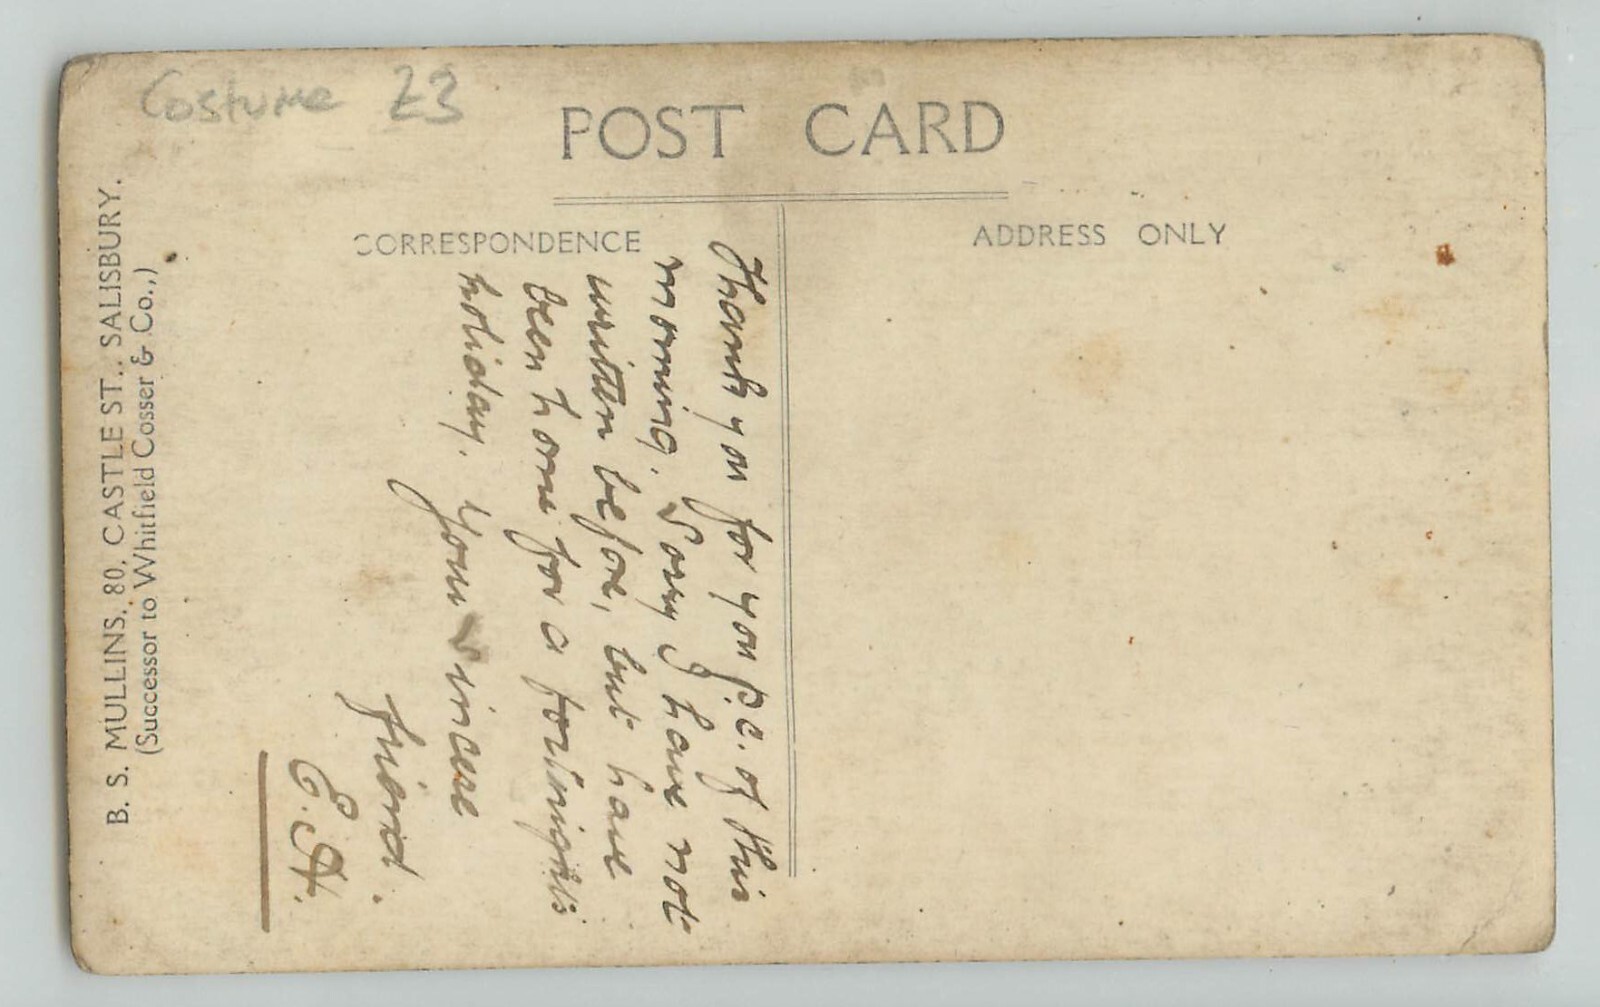 Costume £3
POST CARD
CORRESPONDENCE
ADDRESS ONLY
Thank you for you p.c. of this
morning. Sorry I have not
written before, but have
been home for a fortnights
holiday. Your sincere
friend.
E.A.
B. S. MULLINS, 80, CASTLE ST., SALISBURY.
(Successor to Whitfield Cosser & Co.,)